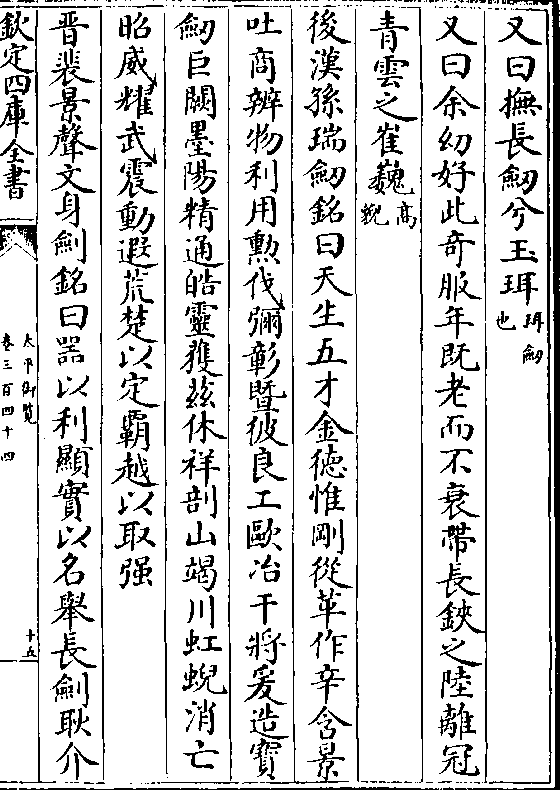 又曰撫長劒兮玉珥珥劒也
又曰余幼好此奇服年既老而不衰帶長鋏之陸離冠
青雲之崔巍高觀
後漢孫瑞劒銘曰天生五才金德惟剛從革作辛含景
吐商辨物利用勲伐彌彰暨彼良工歐冶干將爰造寳
劒巨闕墨陽精通皓靈獲兹休祥剖山竭川虹蜺消亡
昭威耀武震動遐荒楚以定霸越以取强
晋裴景聲文身劒銘曰器以利顯實以名舉長劒耿介
欽定四庫全書
太平御覽
卷三百四十四
十五